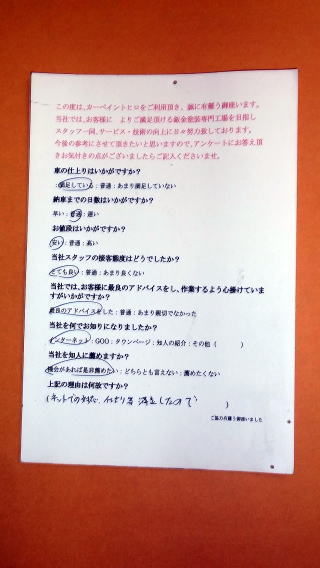 この度は、カーペイントヒロをご利用頂き、誠に有難う御座います。
当社では、お客様に よりご満足頂ける鈑金塗装専門工場を目指し
スタッフ一同、サービス・技術の向上に日々努力致しております。
今後の参考にさせて頂きたいと思いますので、アンケートにお答え頂
きお気付きの点がございましたらご記入くださいませ。
車の仕上りはいかがですか?
:満足している:普通:あまり満足していない
納車までの日数はいかがですか?
早い:普通:遅い
お値段はいかがですか?
安い:普通:高い
当社スタッフの接客態度はどうでしたか?
とても良い:普通:あまり良くない
当社では、お客様に最良のアドバイスをし、作業するよう心掛けていま
すがいかがですか?
最良のアドバイスをした:普通:あまり親切でなかった
当社を何でお知りになりましたか?
インターネット:GOO:タウンページ:知人の紹介:その他( )
当社を知人に薦めますか?
機会があれば是非薦めたい:どちらとも言えない:薦めたくない
上記の理由は何故ですか?
(ネットでの対応、仕上り等 満足したので )
ご協力有難う御座いました